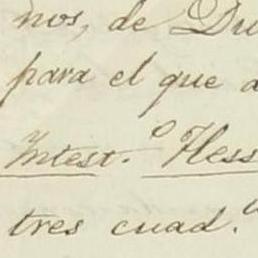 nos, de Du
para el que a
Intest.º Hess
tres cuad.